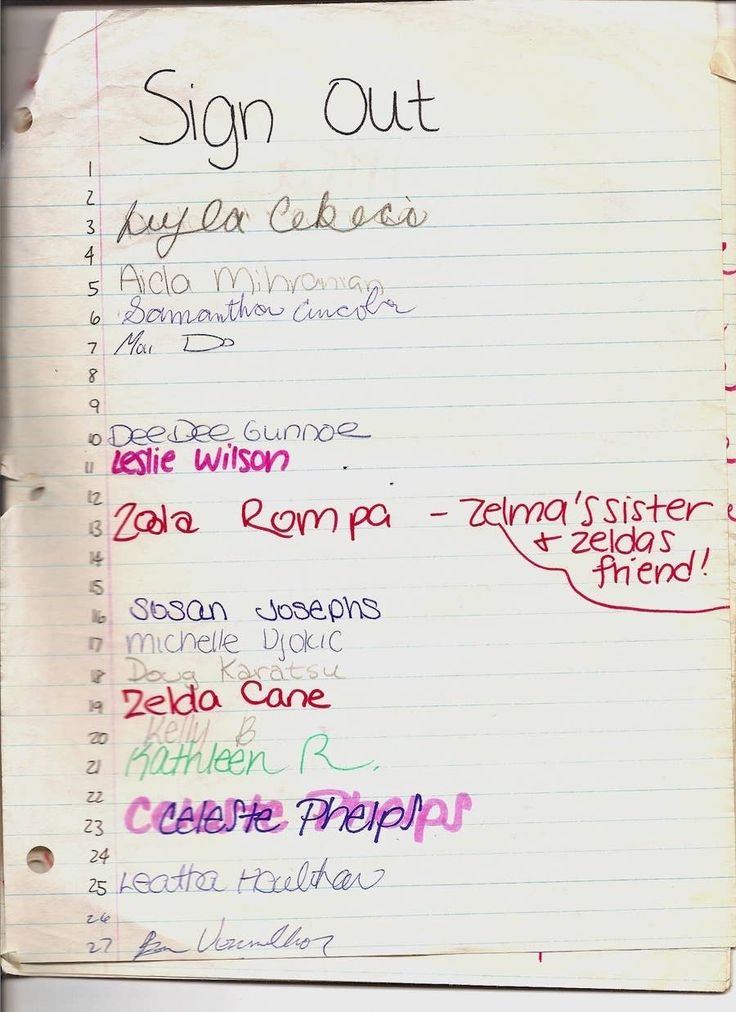 Sign Out
1
2
3 Lyla
4
5 Aida Mihranian
6 Samantha Lincoln
7 Mai Do
8
9
10 DeeDee Gunnoe
11 Leslie Wilson
12
13 Zoola Rompa - Zelma's sister
+ Zeldas
friend!
14
15
16 Susan Josephs
17 Michelle Djokic
18 Doug Karatsu
19 Zelda Cane
20 Kelly B
21 Kathleen R.
22
23 Celeste Phelps
24
25 Leatha
26
27